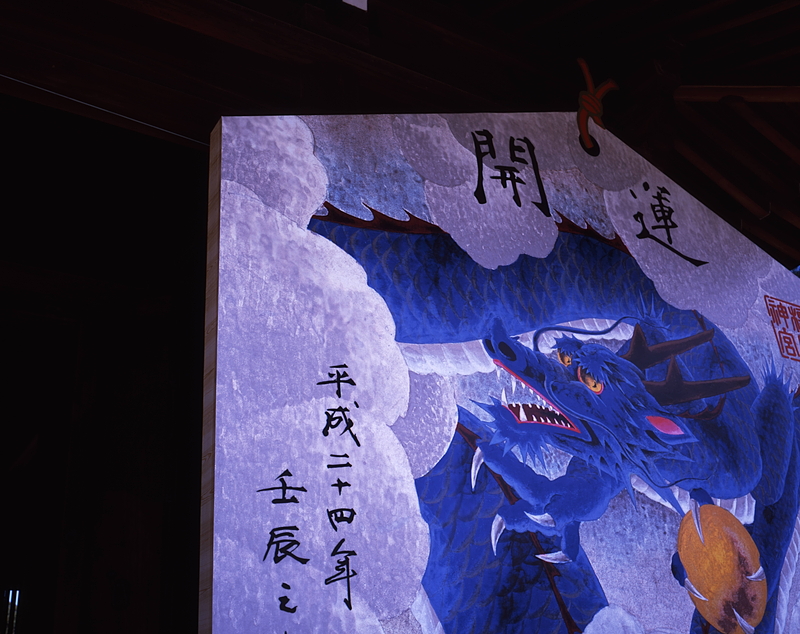 開運
平成二十四年
壬辰之
神宮